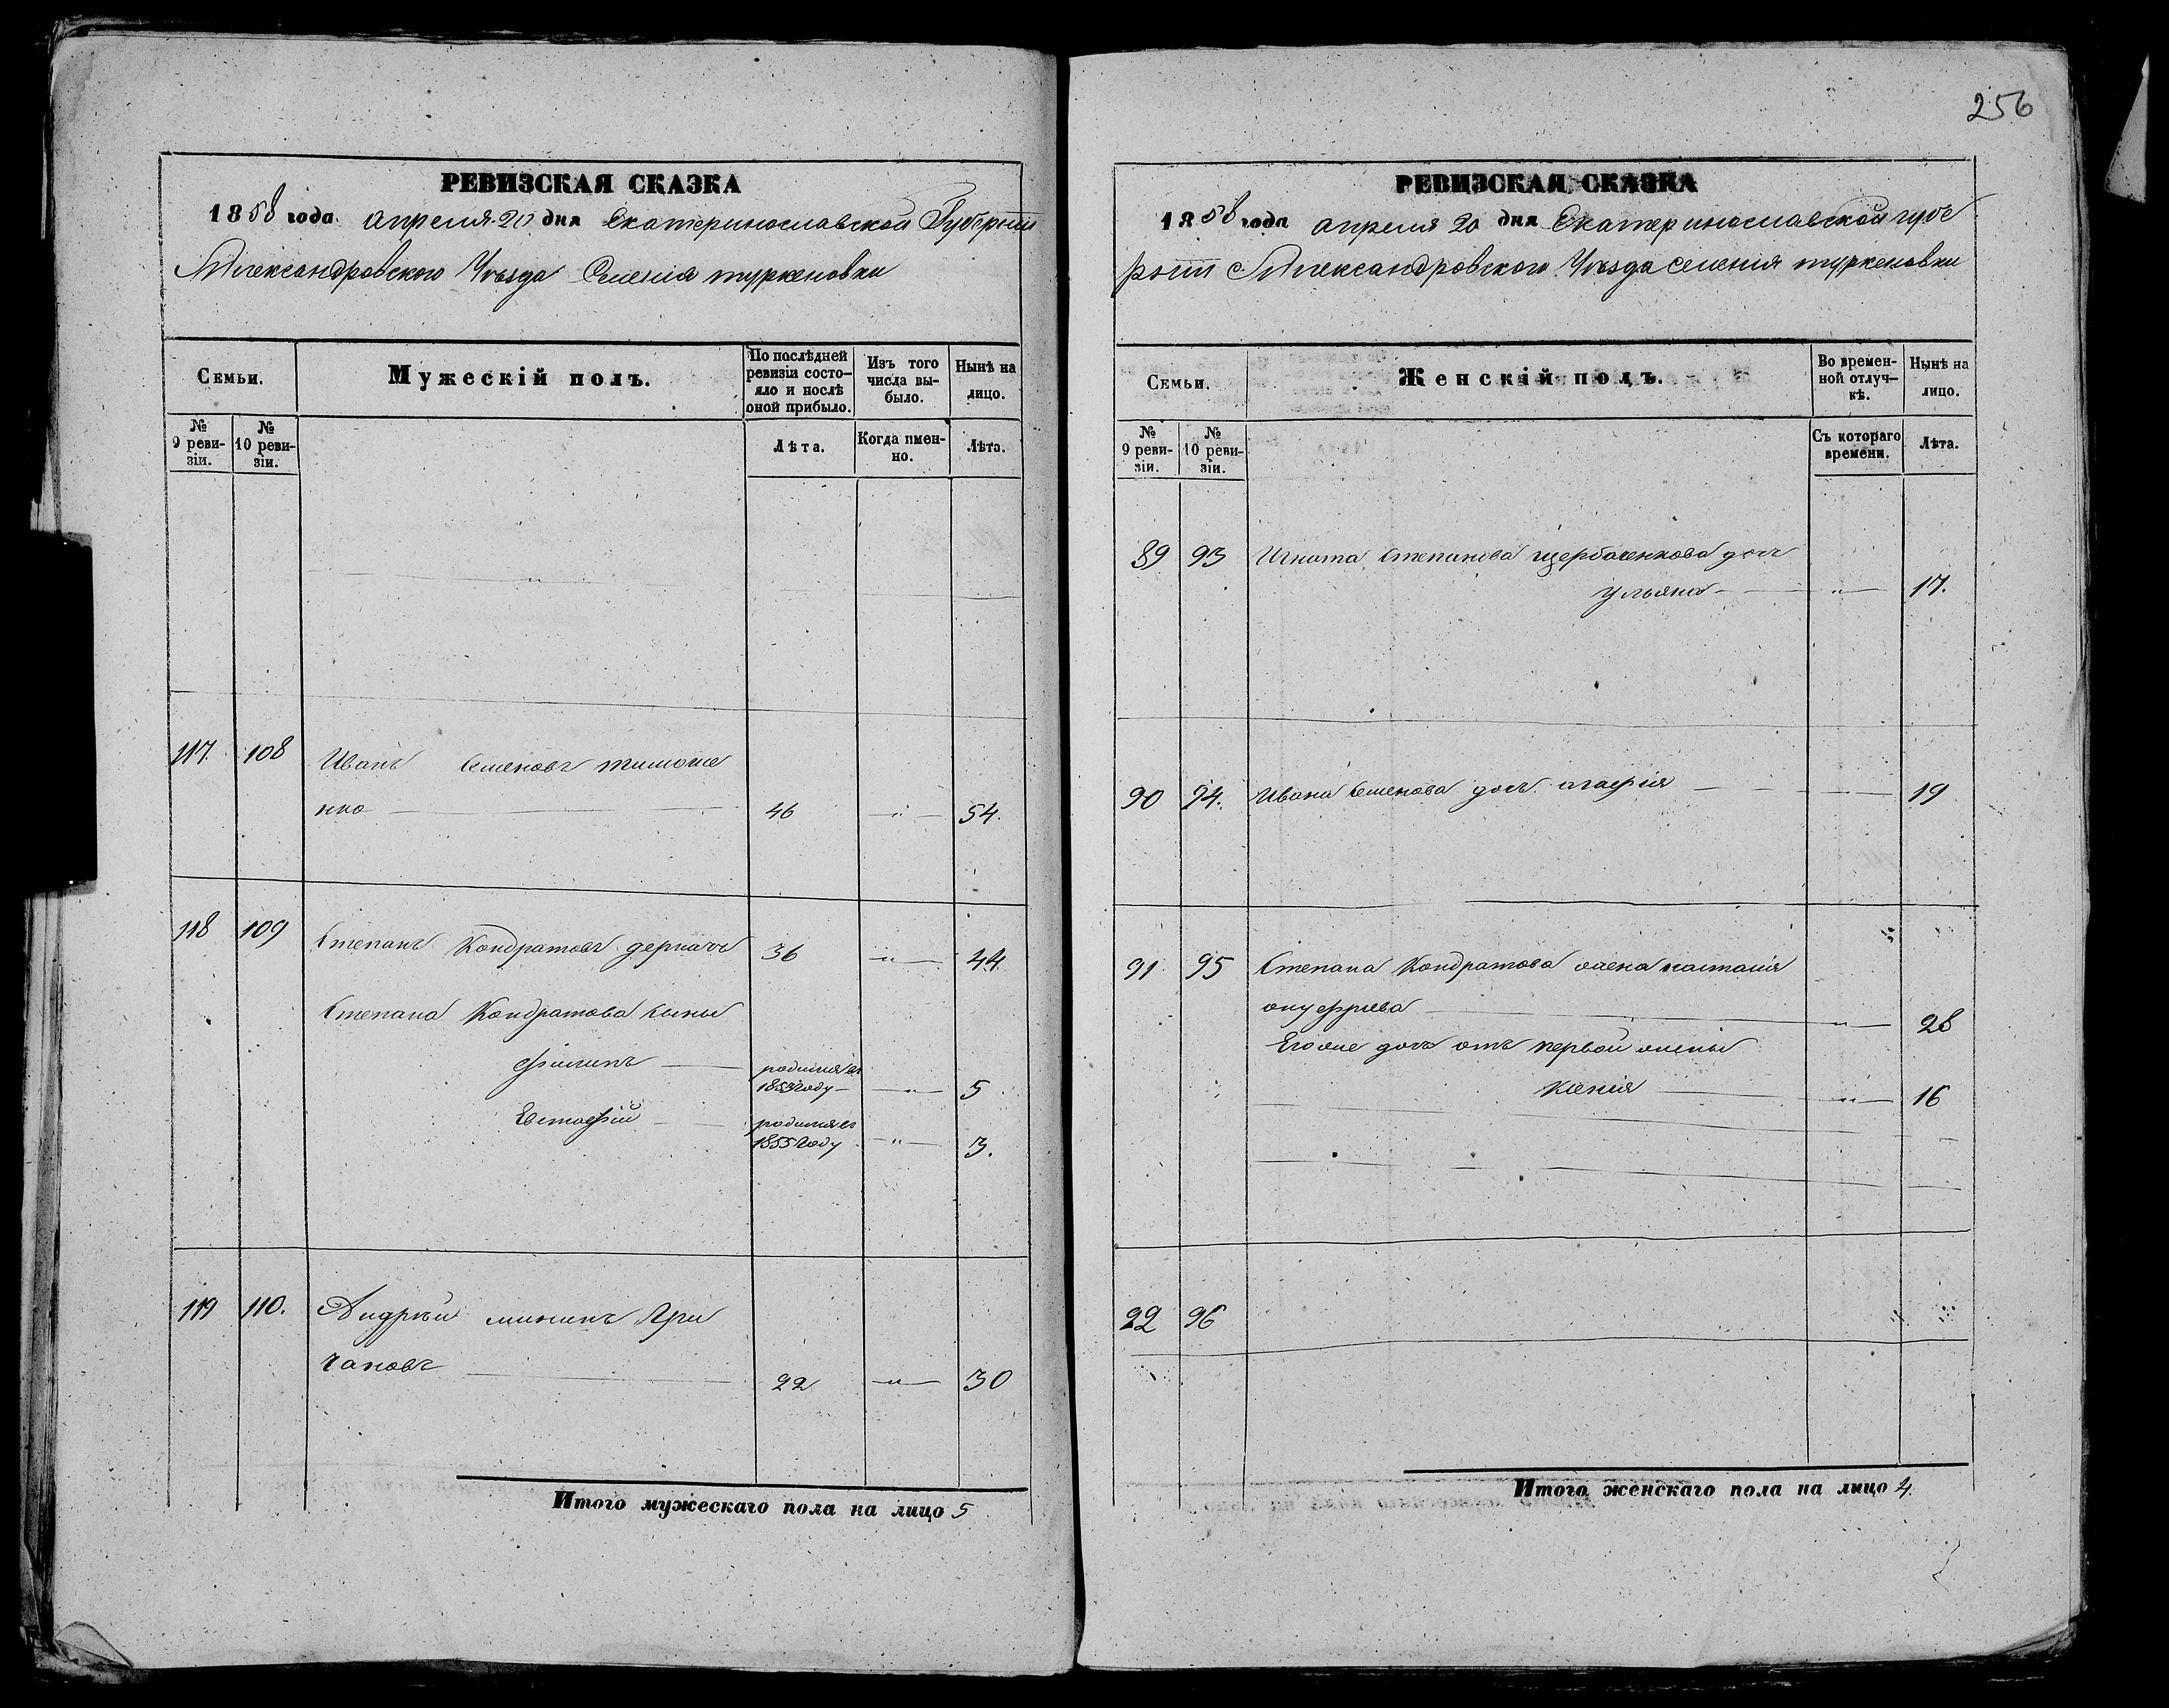 256
РЕВИЗСКАЯ СКАЗКА
1858 года апреля 20 дня Екатеринославской Губернии
Александровского Уѣзда Селенія туркеновки
Семьи.
Мужескій полъ.
По послѣдней ревизіи состо-
яло и послѣ
оной прибыло.
Изъ того
числа вы-
было.
Нынѣ на
лицо.
№
9 реви-
зіи.
№
10 реви-
зіи.
Лѣта.
Когда имен-
но.
Лѣта.
117. 108 Иванъ Семеновъ тимоше
нко 46 " 54.
118 109 Степанъ Кондратовъ деркачъ 36 " 44.
Степана Кондратова сыны
Филипъ родился въ
1853 году " 5
Евстафій родился въ
1855 году " 3.
119 110. Андрѣй мининъ Гри
чановъ 22 " 30
Итого мужескаго пола на лицо 5
РЕВИЗСКАЯ СКАЗКА
1858 года апреля 20 дня Екатеринославской губе
рніи Александровского Уѣзда селенія туркеновки
Семьи.
Женскій полъ.
Во времен-
ной отлуч-
кѣ.
Нынѣ на
лицо.
№
9 реви-
зіи.
№
10 реви-
зіи.
Съ котораго
времени.
Лѣта.
89 93 Игната Степанова щербаченкова дочь
ульяна " 17.
90 94. Ивана Семенова дочь агафія 19
91 95 Степана Кондратова жена настасія
онуфріева " 28
Егоже дочь отъ первой жены
Ксенія " 16
92 96
Итого женскаго пола на лицо 4.